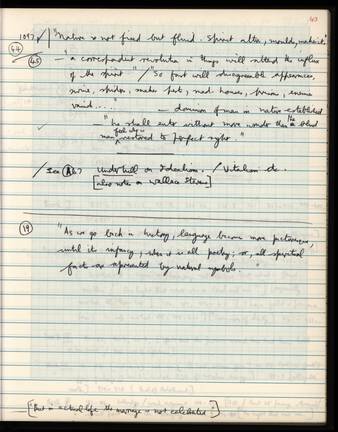 43
1092 / "Nature is not fixed but fluid. Spirit alters, moulds, makes it."
44
45 – "a correspondent revolution in things will attend the influx
of the spirit / "So fast will disagreeable appearances,
swine, spiders, snakes, pests, mad-houses, prisons, enemies
vanish...." – dominion of man in nature established
"he shall enter without more wonder than the blind
man feels who is restored to perfect sight."
/ See 67 Underhill on Idealism. / Vitalism etc.
[also notes on Wallace Stevens]
19 "As we go back in history, language becomes more picturesque,
until its infancy, when it is all poetry; or, all spiritual
facts are represented by natural symbols."
["But in actual life the marriage is not celebrated"]